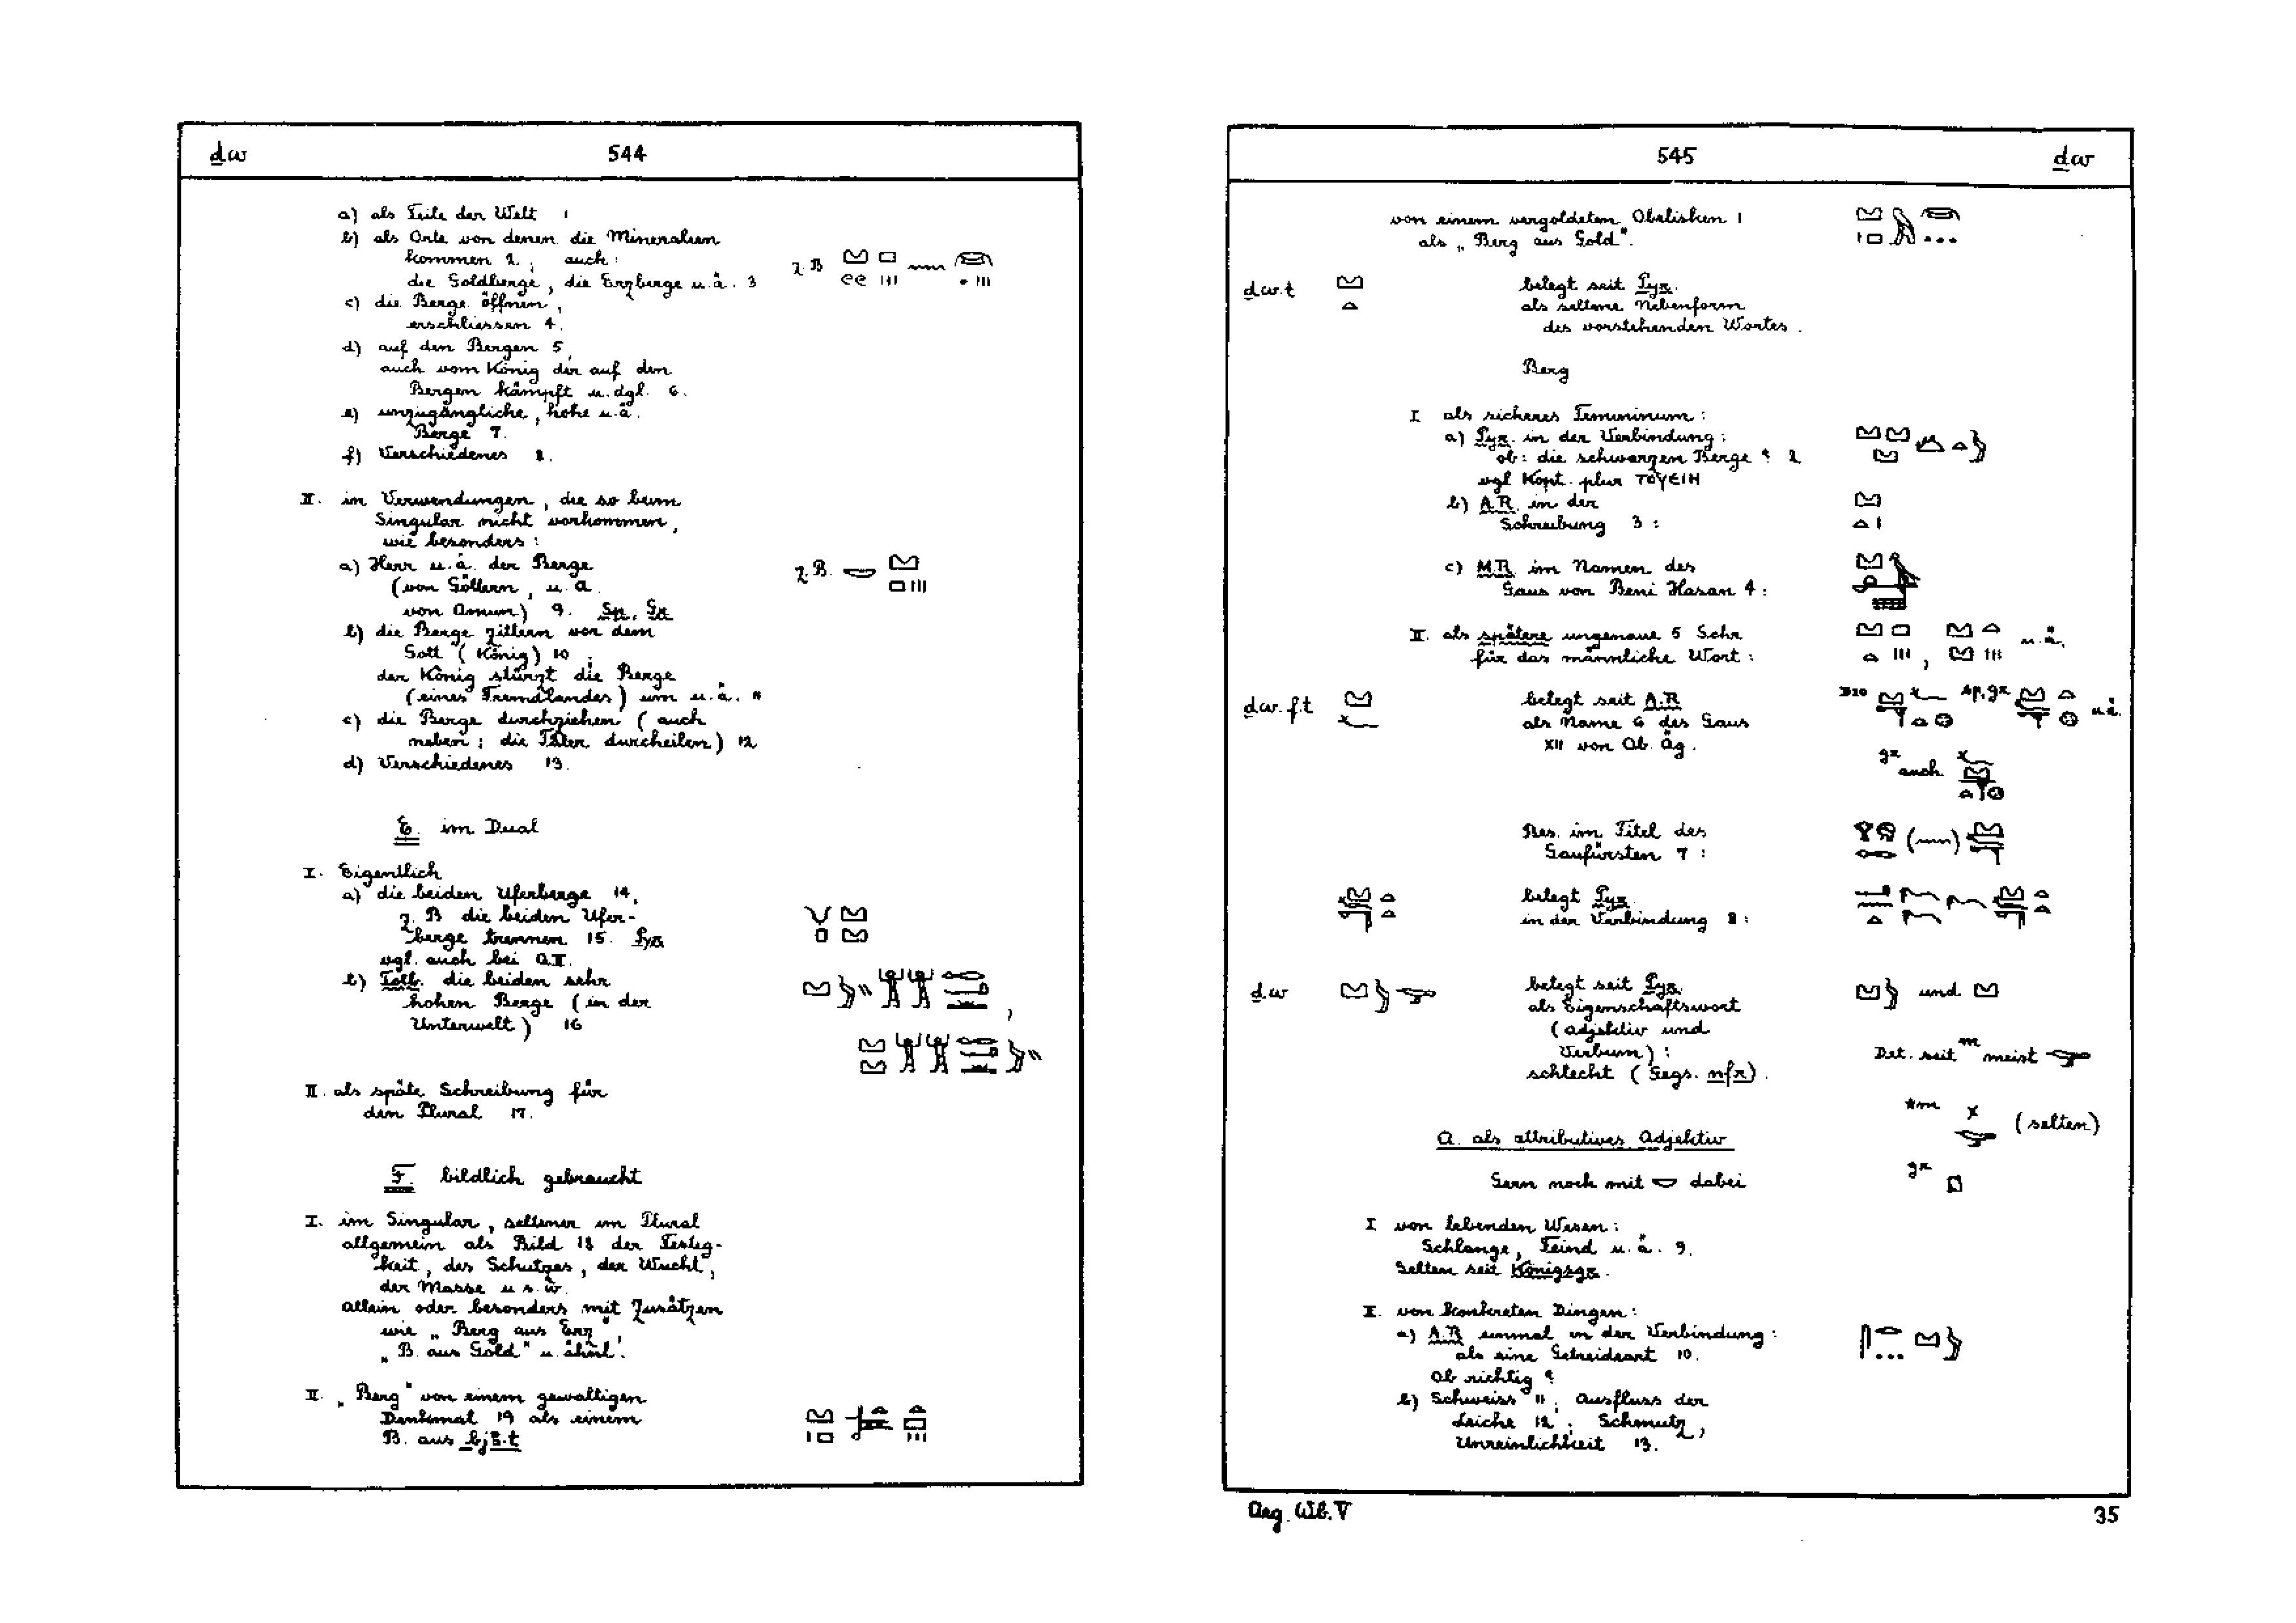 ḏw 544
a) als Teile der Welt 1
b) als Orte von denen die Mineralien
kommen 2, auch:
die Goldberge, die Erzberge u.ä. 3 z.B
c) die Berge öffnen,
erschliessen 4.
d) auf den Bergen 5,
auch vom König der auf den
Bergen kämpft u.dgl. 6.
e) unzugängliche, hohe u.ä.
Berge 7.
f) Verschiedenes 8.
II. in Verwendungen, die so beim
Singular nicht vorkommen,
wie besonders:
a) Herr u.ä. der Berge z.B.
(von Göttern, u. a.
von Amun) 9. Sp. Gr.
b) die Berge zittern vor dem
Gott (König) 10;
der König stürzt die Berge
(eines Fremdlandes) um u.ä. 11
c) die Berge durchziehen (auch
neben: die Täler durcheilen) 12
d) Verschiedenes 13.
E. im Dual
I. Eigentlich
a) die beiden Uferberge 14,
z. B die beiden Ufer-
berge trennen 15. Pyr.
vgl. auch bei A II.
b) Totb. die beiden sehr
hohen Berge (in der
Unterwelt) 16
II. als späte Schreibung für
den Plural 17.
F. bildlich gebraucht
I. im Singular, seltener im Plural
allgemein als Bild 18 der Festig-
keit, des Schutzes, der Wucht,
der Masse u.s.w.
allein oder besonders mit Zusätzen
wie „Berg aus Erz",
„B. aus Gold" u. ähnl.
II. „Berg" von einem gewaltigen
Denkmal 19 als einem
B. aus bjꜣ.t
545 ḏw
von einem vergoldeten Obelisken 1
als „Berg aus Gold".
ḏw.t belegt seit Pyr.
als seltene Nebenform
des vorstehenden Wortes.
Berg
I als sicheres Femininum:
a) Pyr. in der Verbindung:
ob: die schwarzen Berge? 2
vgl Kopt. plur ΤΟΥΕΙΗ
b) A.R. in der
Schreibung 3:
c) M.R. im Namen des
Gaus von Beni Hasan 4:
II. als spätere ungenaue 5 Schr
für das männliche Wort: , u.ä.
ḏw.f.t belegt seit A.R D 20 Sp. gr u.ä.
als Name 6 des Gaus
XII von Ob. Äg.
gr auch
Bes. im Titel des
Gaufürsten 7: ( )
belegt Pyr.
in der Verbindung 8:
ḏw belegt seit Pyr. und
als Eigenschaftswort
(Adjektiv und
Verbum): Det. seit m meist
schlecht (Gegs. nfr).
*m (selten)
A. als attributives Adjektiv
Gern noch mit dabei gr
I von lebenden Wesen:
Schlange, Feind u.ä. 9.
Selten seit Königsgr.
II. von konkreten Dingen:
a) A.R einmal in der Verbindung:
als eine Getreideart 10.
Ob richtig?
b) Schweiss 11, Ausfluss der
Leiche 12; Schmutz,
Unreinlichkeit 13.
Aeg. Wb. V 35